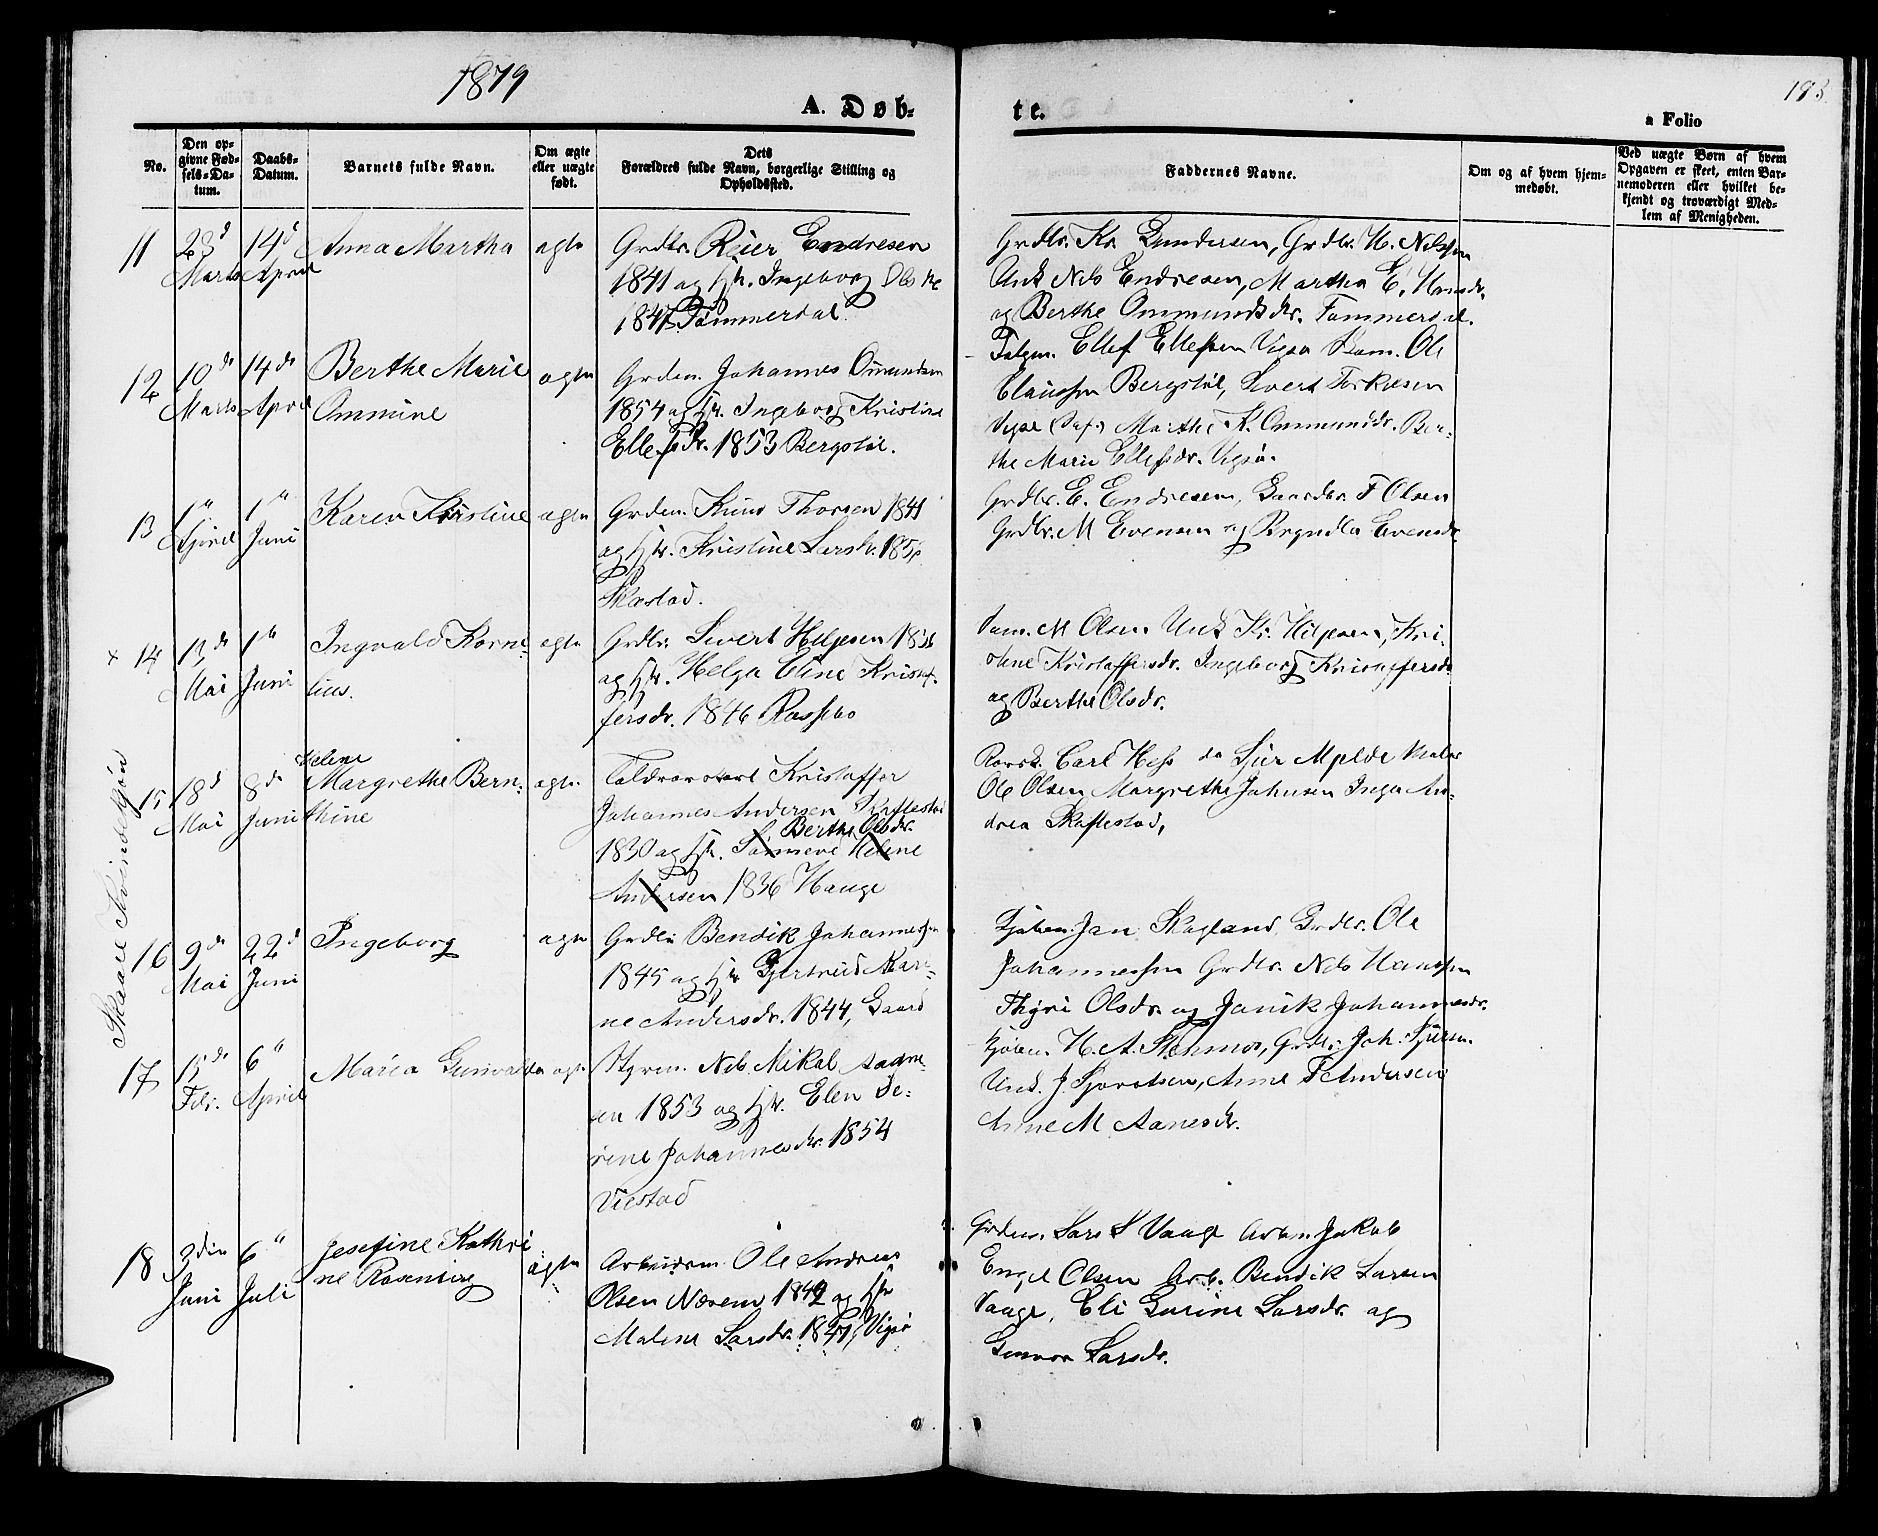 1879
193.
A. Døb-
te.
a Folio
No.
Den op-
givne Fød-
sels-Da-
tum.
Daabs-
Datum.
Barnets fulde Navn.
Om ægte
eller uægte
født.
Dets
Forældres fulde Navn, borgerlige Stilling og
Opholdssted.
Faddernes Navne.
Om og af hvem hjem-
medøbt.
Ved uægte Børn af hvem
Opgaven er skeet, enten Bar-
nemoderen eller hvilket be-
kjendt og troværdigt Med-
lem af Menigheden.
11
23d
Marts
14d
April
Anna Martha
ægte
Grdbr. Rier Endresen
1841 og Hu. Ingeborg
Tømmerdal.
Grdbr. Kr. Gundersen, Grdbr. H. Nilssen
Unk Nils Endresen, Martha E.
og Berthe Ommundsdr. Tømmerdal.
12
10de
Marts
14de
April
Berthe Marie
Ommine
ægte
Grdm. Johannes Omundsen
1854 og Hu. Ingeborg Kristine
Ellefsdr. 1853 Bergstøl.
Ellef Ellefsen Vigsø Ole
Claussen Bergstøl, Sivert
Marthe K. Ommundsdr. Ber-
the Marie Ellefsdr. Vigsø.
13
1ste
April
1ste
Juni
Karen Kirstine
ægte
Grdm. Knud Thorsen 1841
og Hu. Kristine Larsdr.
Skastad.
Grdbr. E. Endresen, Gaardbr. T Olsen
Grdbr. M Evensen og Bryndla Evensdr.
x
14
Mai
1ste
Juni
Ingvald Korne-
lius.
ægte
Grdbr. Sivert Helgesen
og Hu. Helga Eline Kristof-
fersdr. 1846 Rossebø
M Olsen Unk Kr. Helgesen, Kri-
stine Kristoffersdr. Ingeborg Kristoffersdr.
og Berthe Olsdr.
15
18d
Mai
8de
Juni
Helene
Margrethe Bern-
thine
ægte
Kristoffer
Johannes Andersen Skaftestad
Berthe Olsdr.
1830 og Hu. Sønneve Helene
Andersen 1836 Hauge
Carl Hess do Sjur Mjelde Maler
Ole Olsen Margrethe Johnsen Inga An-
drea Skaftestad,
Skaare
16
9de
Mai
22d
Juni
Ingeborg
ægte
Grdbr Bendik Johannessen
1845 og Hu Gjertrud Kari-
ne Andersdr. 1844, Gaard
Kjøbm. Jan Skogland, Grdbr. Ole
Johannessen Grdbr. Nils Hanssen
Thyri Olsdr. og Janik Johannesdr.
17
15de
Febr.
6te
April
Maria Gunvalda
ægte
Styrm. Nils Mikal
en 1853 og Hu. Elen Se-
rine Johannesdr. 1854
Viestad
Kjøbm. H. A.
Und. J Sjovatsen, Anne T Andersen
Anne M Aanesdr.
18
3die
Juni
6te
Juli
Josefine Kathri
ne Rosenberg
ægte
Arbeidsm. Ole Andreas
Olsen Næsem 1842 og Hu
Malene Larsdr. Vigsø
Grdm. Lars S Vaage Arbm Jakob
Engel Olsen Arb. Bendik Larsen
Vaage, Eli Gurine Larsdr. og
Gunvor Larsdr.